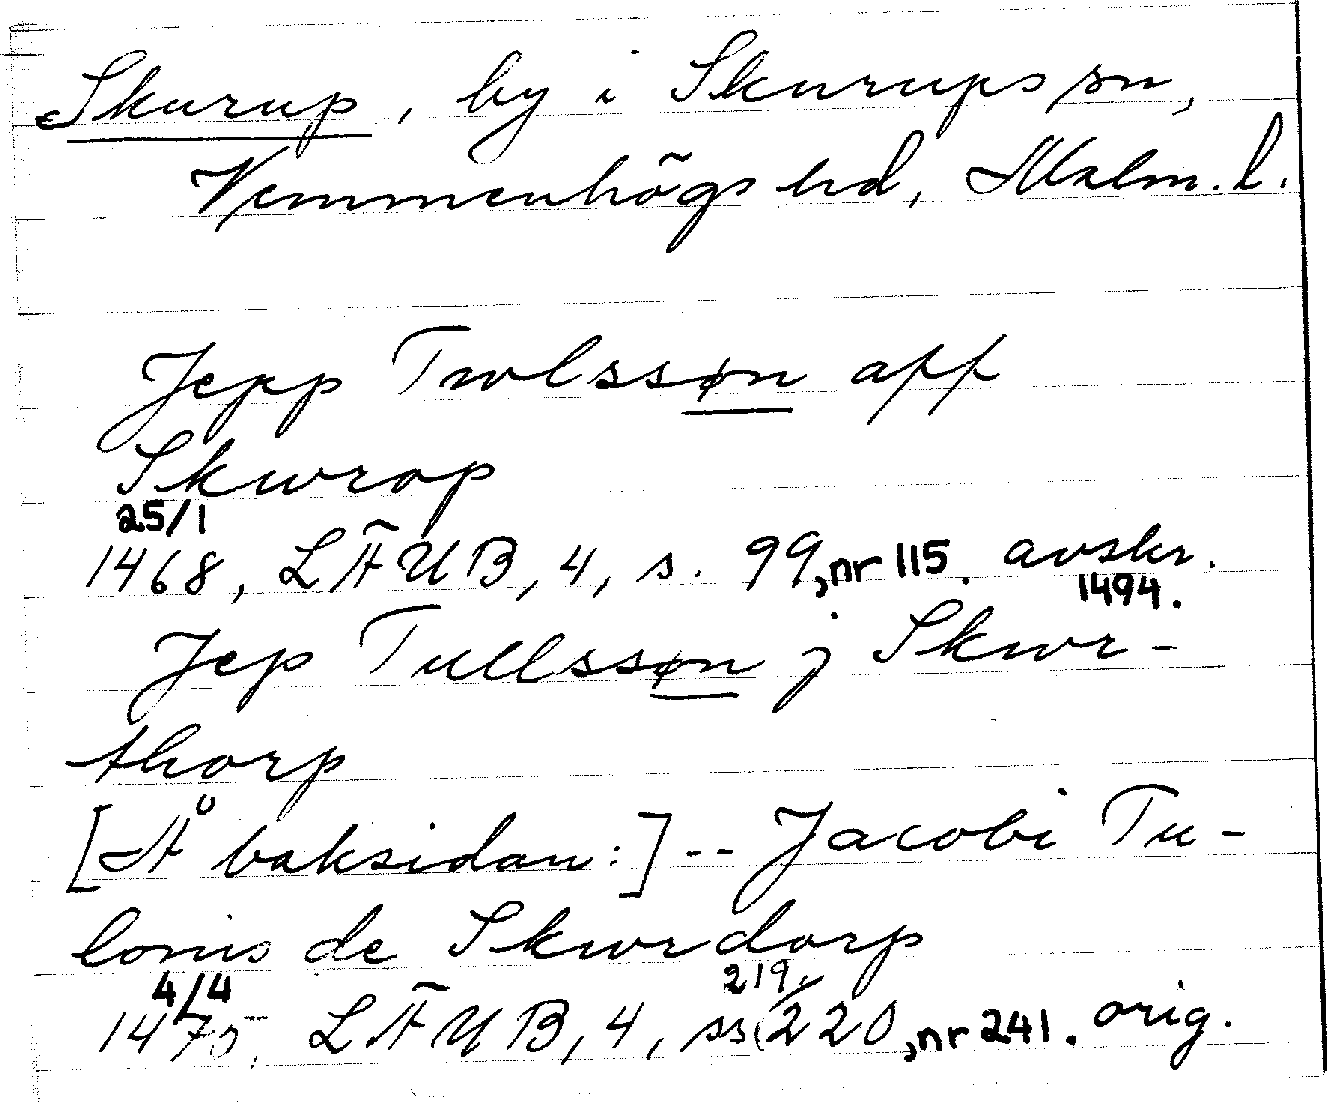 Skurup, by i Skurups sn,
Vemmenhögs hd, Malm. l.
Jepp Trwlssøn aff
Skwrop
25/1
1468, LÄUB, 4, s. 99, nr 115. avskr.
1494.
Jep Tullssøn j Skwr-
thorp
[Å baksidan:] -- Jacobi Tu-
lonis de Skwrdorp
4/4 219,
1475, LÄUB, 4, ss (220, nr 241. orig.